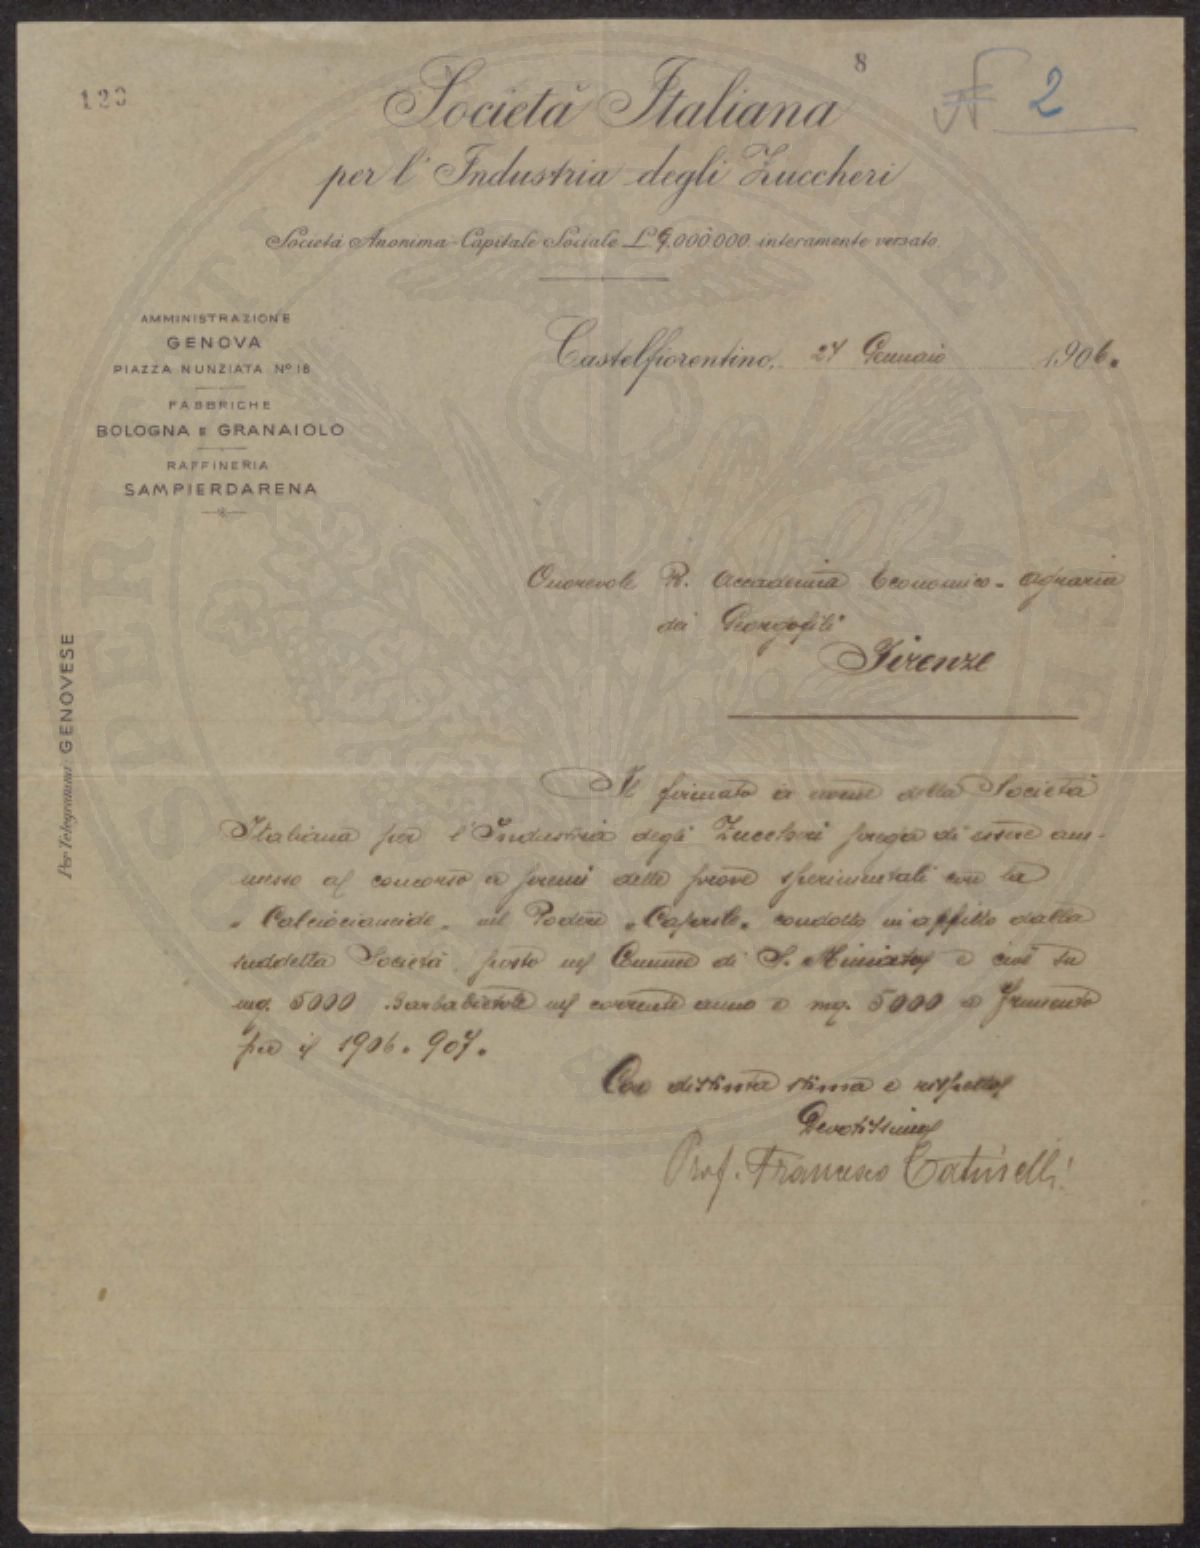 120
8
N 2
Società Italiana
per l'Industria degli Zuccheri
Società Anonima-Capitale Sociale L. 6,000.000 interamente versato
AMMINISTRAZIONE
GENOVA
PIAZZA NUNZIATA Nº 18
FABBRICHE
BOLOGNA E GRANAIOLO
RAFFINERIA
SAMPIERDARENA
Per Telegrammi GENOVESE
Castelfiorentino, 27 Gennaio 1906.
Onorevole R. Accademia Economico-Agraria
dei Georgofili
Firenze
Il firmato a nome della Società
Italiana per l'Industria degli Zuccheri prega di essere am-
messo al concorso a premi delle prove sperimentali con la
"Calciocianide" nel Podere "Caprile" condotto in affitto dalla
suddetta Società, posto nel Comune di S. Miniato e cioè su
mq. 5000 Barbabietole nel corrente anno e mq. 5000 a frumento
per il 1906.907.
Con distinta stima e rispetto
Devotissimo
Prof. Francesco
PROSPERITATI AUGENDAE